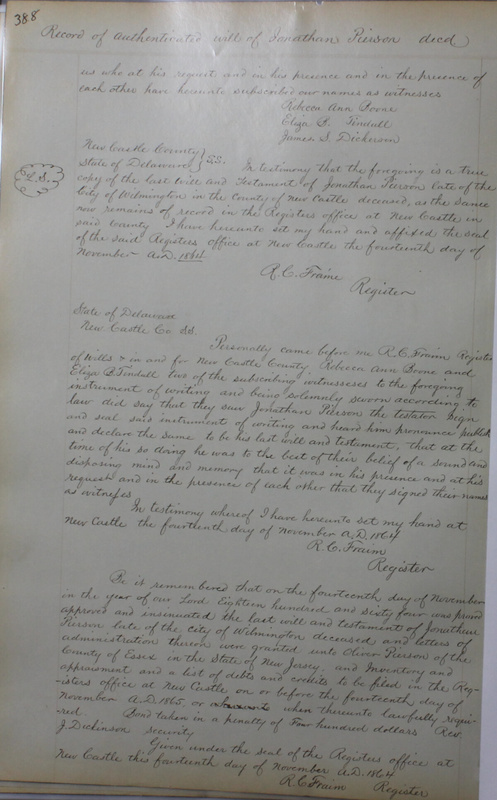 388
Record of authenticated will of Jonathan Pierson decd
us who at his request and in his presence and in the presence of
each other have hereunto subscribed our names as witnesses
Rebecca Ann Boone
Eliza B. Tindall
James S. Dickerson
New Castle County
State of Delaware } SS.
L.S.
In testimony that the foregoing is a true
copy of the last Will and Testament of Jonathan Pierson late of the
City of Wilmington in the County of New Castle deceased, as the same
now remains of record in the Registers office at New Castle in
said County I have hereunto set my hand and affixed the seal
of the said Registers office at New Castle the fourteenth day of
November A.D. 1864
R. C. Fraime
Register
State of Delaware
New Castle Co. SS.
Personally came before me R. C. Fraim Register
of Wills & in and for New Castle County, Rebecca Ann Boone and
Eliza B. Tindall two of the subscribing witnesseses to the foregoing
instrument of writing and being solemnly sworn according to
law did say that they saw Jonathan Pierson the testator Sign
and seal said instrument of writing and heard him pronounce publish
and declare the same to be his last will and testament, that at the
time of his so doing he was to the best of their belief of a sound and
disposing mind and memory that it was in his presence and at his
request and in the presence of each other that they signed their names
as witnesses
In testimony whereof I have hereunto set my hand at
New Castle the fourteenth day of November A.D. 1864
R. C. Fraim
Register
Be is remembered that on the fourteenth day of November
in the year of our Lord Eighteen hundred and sixty four was
approved and insinuated the last will and testament of Jonathan
Pierson late of the city of Wilmington deceased and letters of
administration thereon were granted unto Oliver Pierson of the
County of Essex in the State of New Jersey. and Inventory and
appraisment and a list of debts and credits to be filed in the Reg-
-isters office at New Castle on or before the fourteenth day of
November A.D. 1865, or when thereunto lawfully requi-
-red Bond taken in a penalty of Four hundred dollars Rev.
J. Dickinson security
Given under the seal of the Registers office at
New Castle this fourteenth day of november A.D. 1864
R. C. Fraim Register